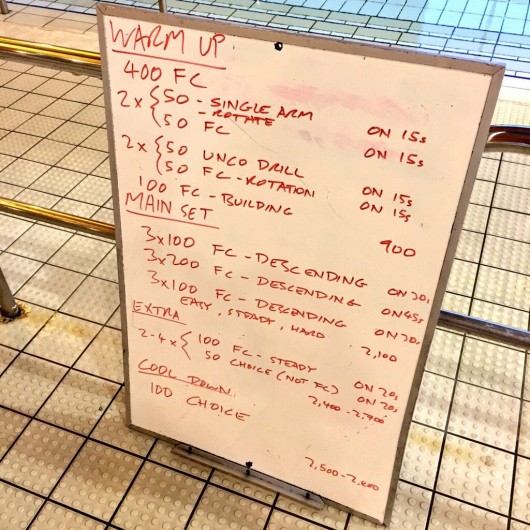 WARM UP
400 FC
2x { 50 - SINGLE ARM ON 15s
- ROTATE
50 FC ON 15s
2x { 50 UNCO DRILL ON 15s
50 FC - ROTATION ON 15s
100 FC - BUILDING
900
MAIN SET
3x100 FC - DESCENDING ON 30s
3x200 FC - DESCENDING ON 45s
3x100 FC - DESCENDING ON 30s
EASY, STEADY, HARD
2,100
EXTRA
2-4x { 100 FC - STEADY ON 20s
50 CHOICE (NOT FC) ON 20s
2,400 - 2,700
COOL DOWN
100 CHOICE
2,500 - 2,800